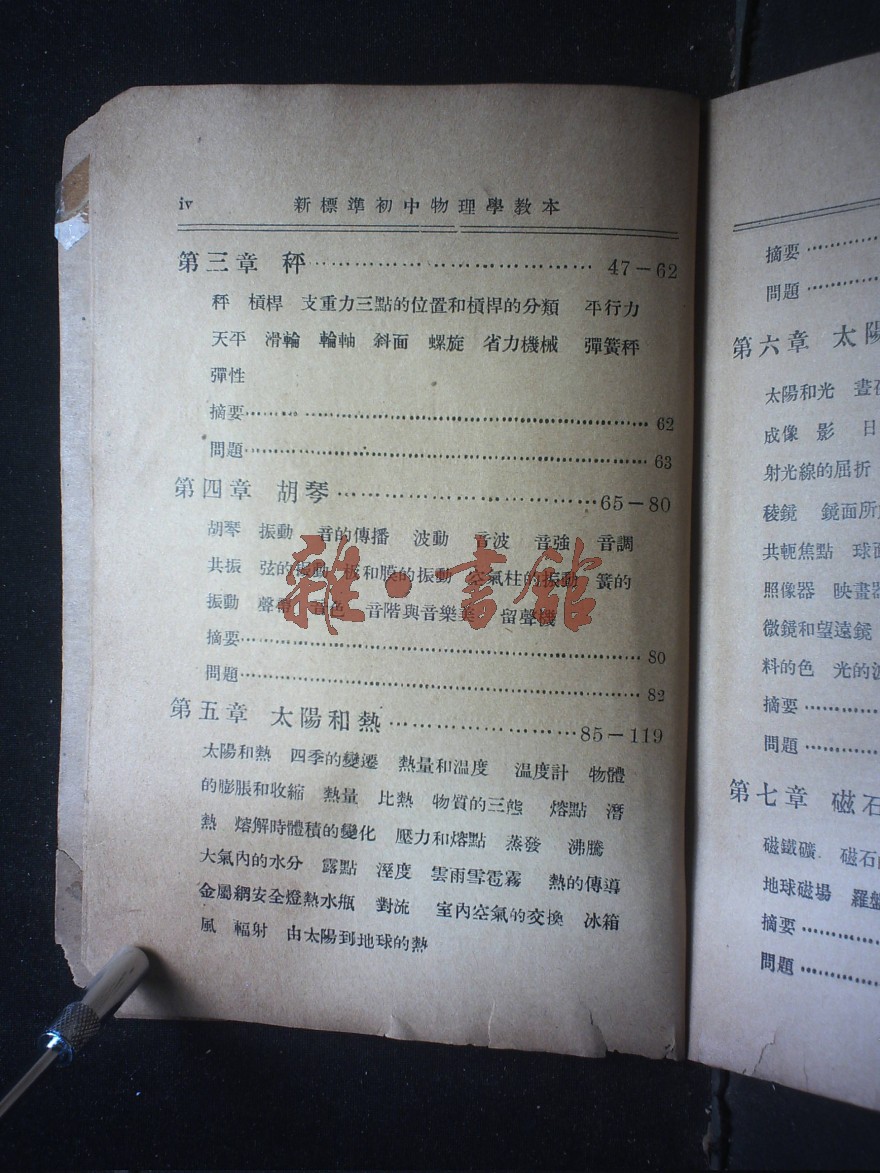 iv 新標準初中物理學教本
第三章 秤 47－62
秤 槓桿 支重力三點的位置和槓桿的分類 平行力
天平 滑輪 輪軸 斜面 螺旋 省力機械 彈簧秤
彈性
摘要 62
問題 63
第四章 胡琴 65－80
胡琴 振動 音的傳播 波動 音波 音強 音調
共振 弦的振動 板和膜的振動 空氣柱的振動 簧的
振動 聲帶 音色 音階與音樂 留聲機
摘要 80
問題 82
第五章 太陽和熱 85－119
太陽和熱 四季的變遷 熱量和溫度 溫度計 物體
的膨脹和收縮 熱量 比熱 物質的三態 熔點 潛
熱 熔解時體積的變化 壓力和熔點 蒸發 沸騰
大氣內的水分 露點 溼度 雲雨雪雹霧 熱的傳導
金屬網安全燈熱水瓶 對流 室內空氣的交換 冰箱
風 輻射 由太陽到地球的熱
雜·書館
摘要
問題
第六章 太陽
太陽和光 晝
成像 影 日
射光線的屈折
稜鏡 鏡面所
共軛焦點 球面
照像器 映畫器
微鏡和望遠鏡
料的色 光的
摘要
問題
第七章 磁石
磁鐵礦 磁石
地球磁場 羅盤
摘要
問題